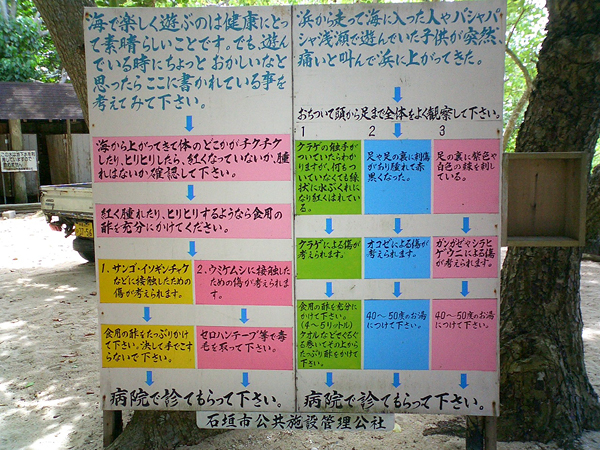 海で楽しく遊ぶのは健康にとっ
て素晴らしいことです。でも、遊ん
でいる時にちょっと おかしいなと
思ったらここに書かれている事を
考えてみて下さい。
海から上がってきて体のどこかがチクチク
したり、ヒリヒリしたら、紅くなっていないか、腫
れはないか確認して下さい。
紅く腫れたり、ヒリヒリするようなら食用の
酢を充分にかけてください。
1. サンゴ・イソギンチャク
などに接触したための
傷が考えられます。
食用の酢をたっぷりかけ
て下さい。決して手でこす
らないで下さい。
2. ウミケムシに接触し
たための傷が考えられま
す。
セロハンテープ等で毒
毛を取って下さい。
病院で診てもらって下さい。
浜から走って海に入った人やバシャバ
シャ浅瀬で遊んでいた子供が突然、
痛いと叫んで浜に上がってきた。
おちついて頭から足まで全体をよく観察して下さい。
1
クラゲの触手が
ついていたらわか
りますが、何も
ついていなくても線
状に水ぶくれに
なり紅くはれてい
る。
クラゲによる傷が
考えられます。
食用の酢を充分に
かけて下さい。
(4〜5リットル)
タオルなどでぐるぐ
る巻いてその上から
たっぷり酢をかけて
下さい。
2
足や足の裏に刺傷
があり腫れて赤
黒くなった。
オコゼによる傷が
考えられます。
40〜50度のお湯
につけて下さい。
3
足の裏に紫色や
白色の棘を刺し
ている。
ガンガゼやシラヒ
ゲウニによる傷が
考えられます。
40〜50度のお湯
につけて下さい。
病院で診てもらって下さい。
石垣市公共施設管理公社